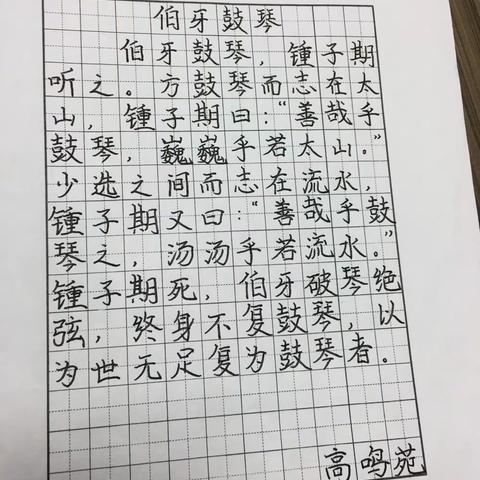 伯牙鼓琴
伯牙鼓琴，锺子期
听之。方鼓琴而志在太
山，锺子期曰：“善哉乎
鼓琴，巍巍乎若太山。”
少选之间而志在流水，
锺子期又曰：“善哉乎鼓
琴之，汤汤乎若流水。”
锺子期死，伯牙破琴绝
弦，终身不复鼓琴，以
为世无足复为鼓琴者。
高鸣苑